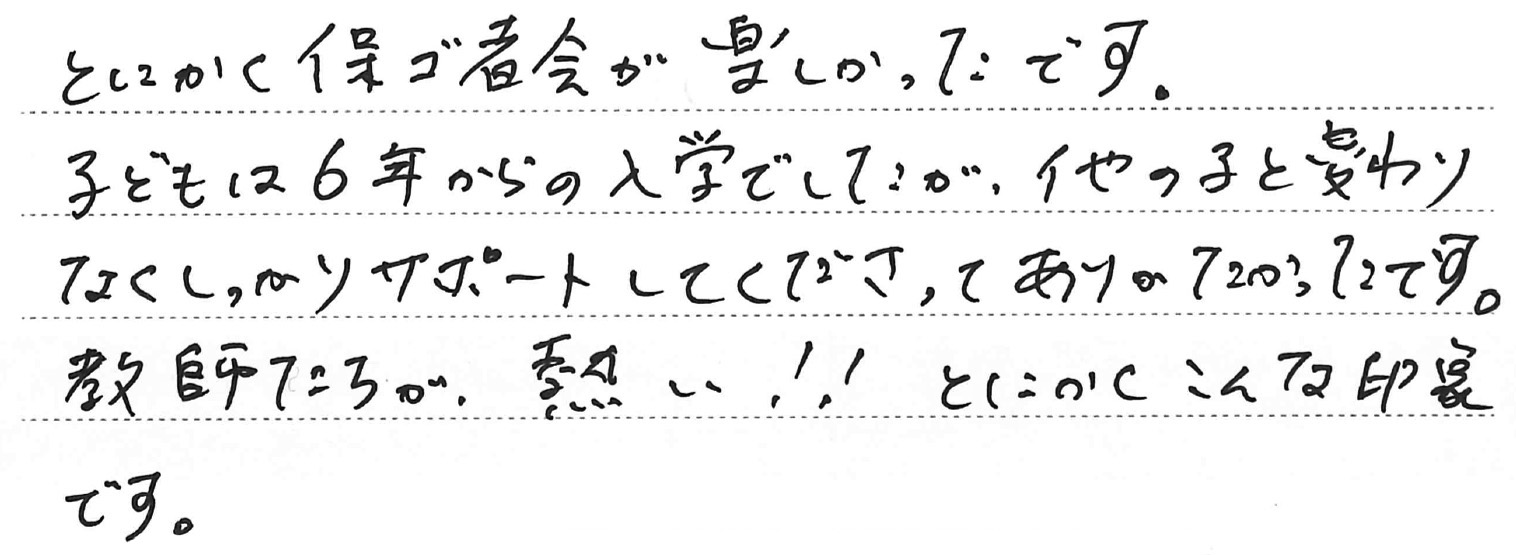 とにかく保ゴ者会が楽しかったです。
子どもは6年からの入学でしたが、他の子と変わり
なくしっかりサポートしてくださってありがたかったです。
教師たちが、熱い!! とにかくこんな印象
です。